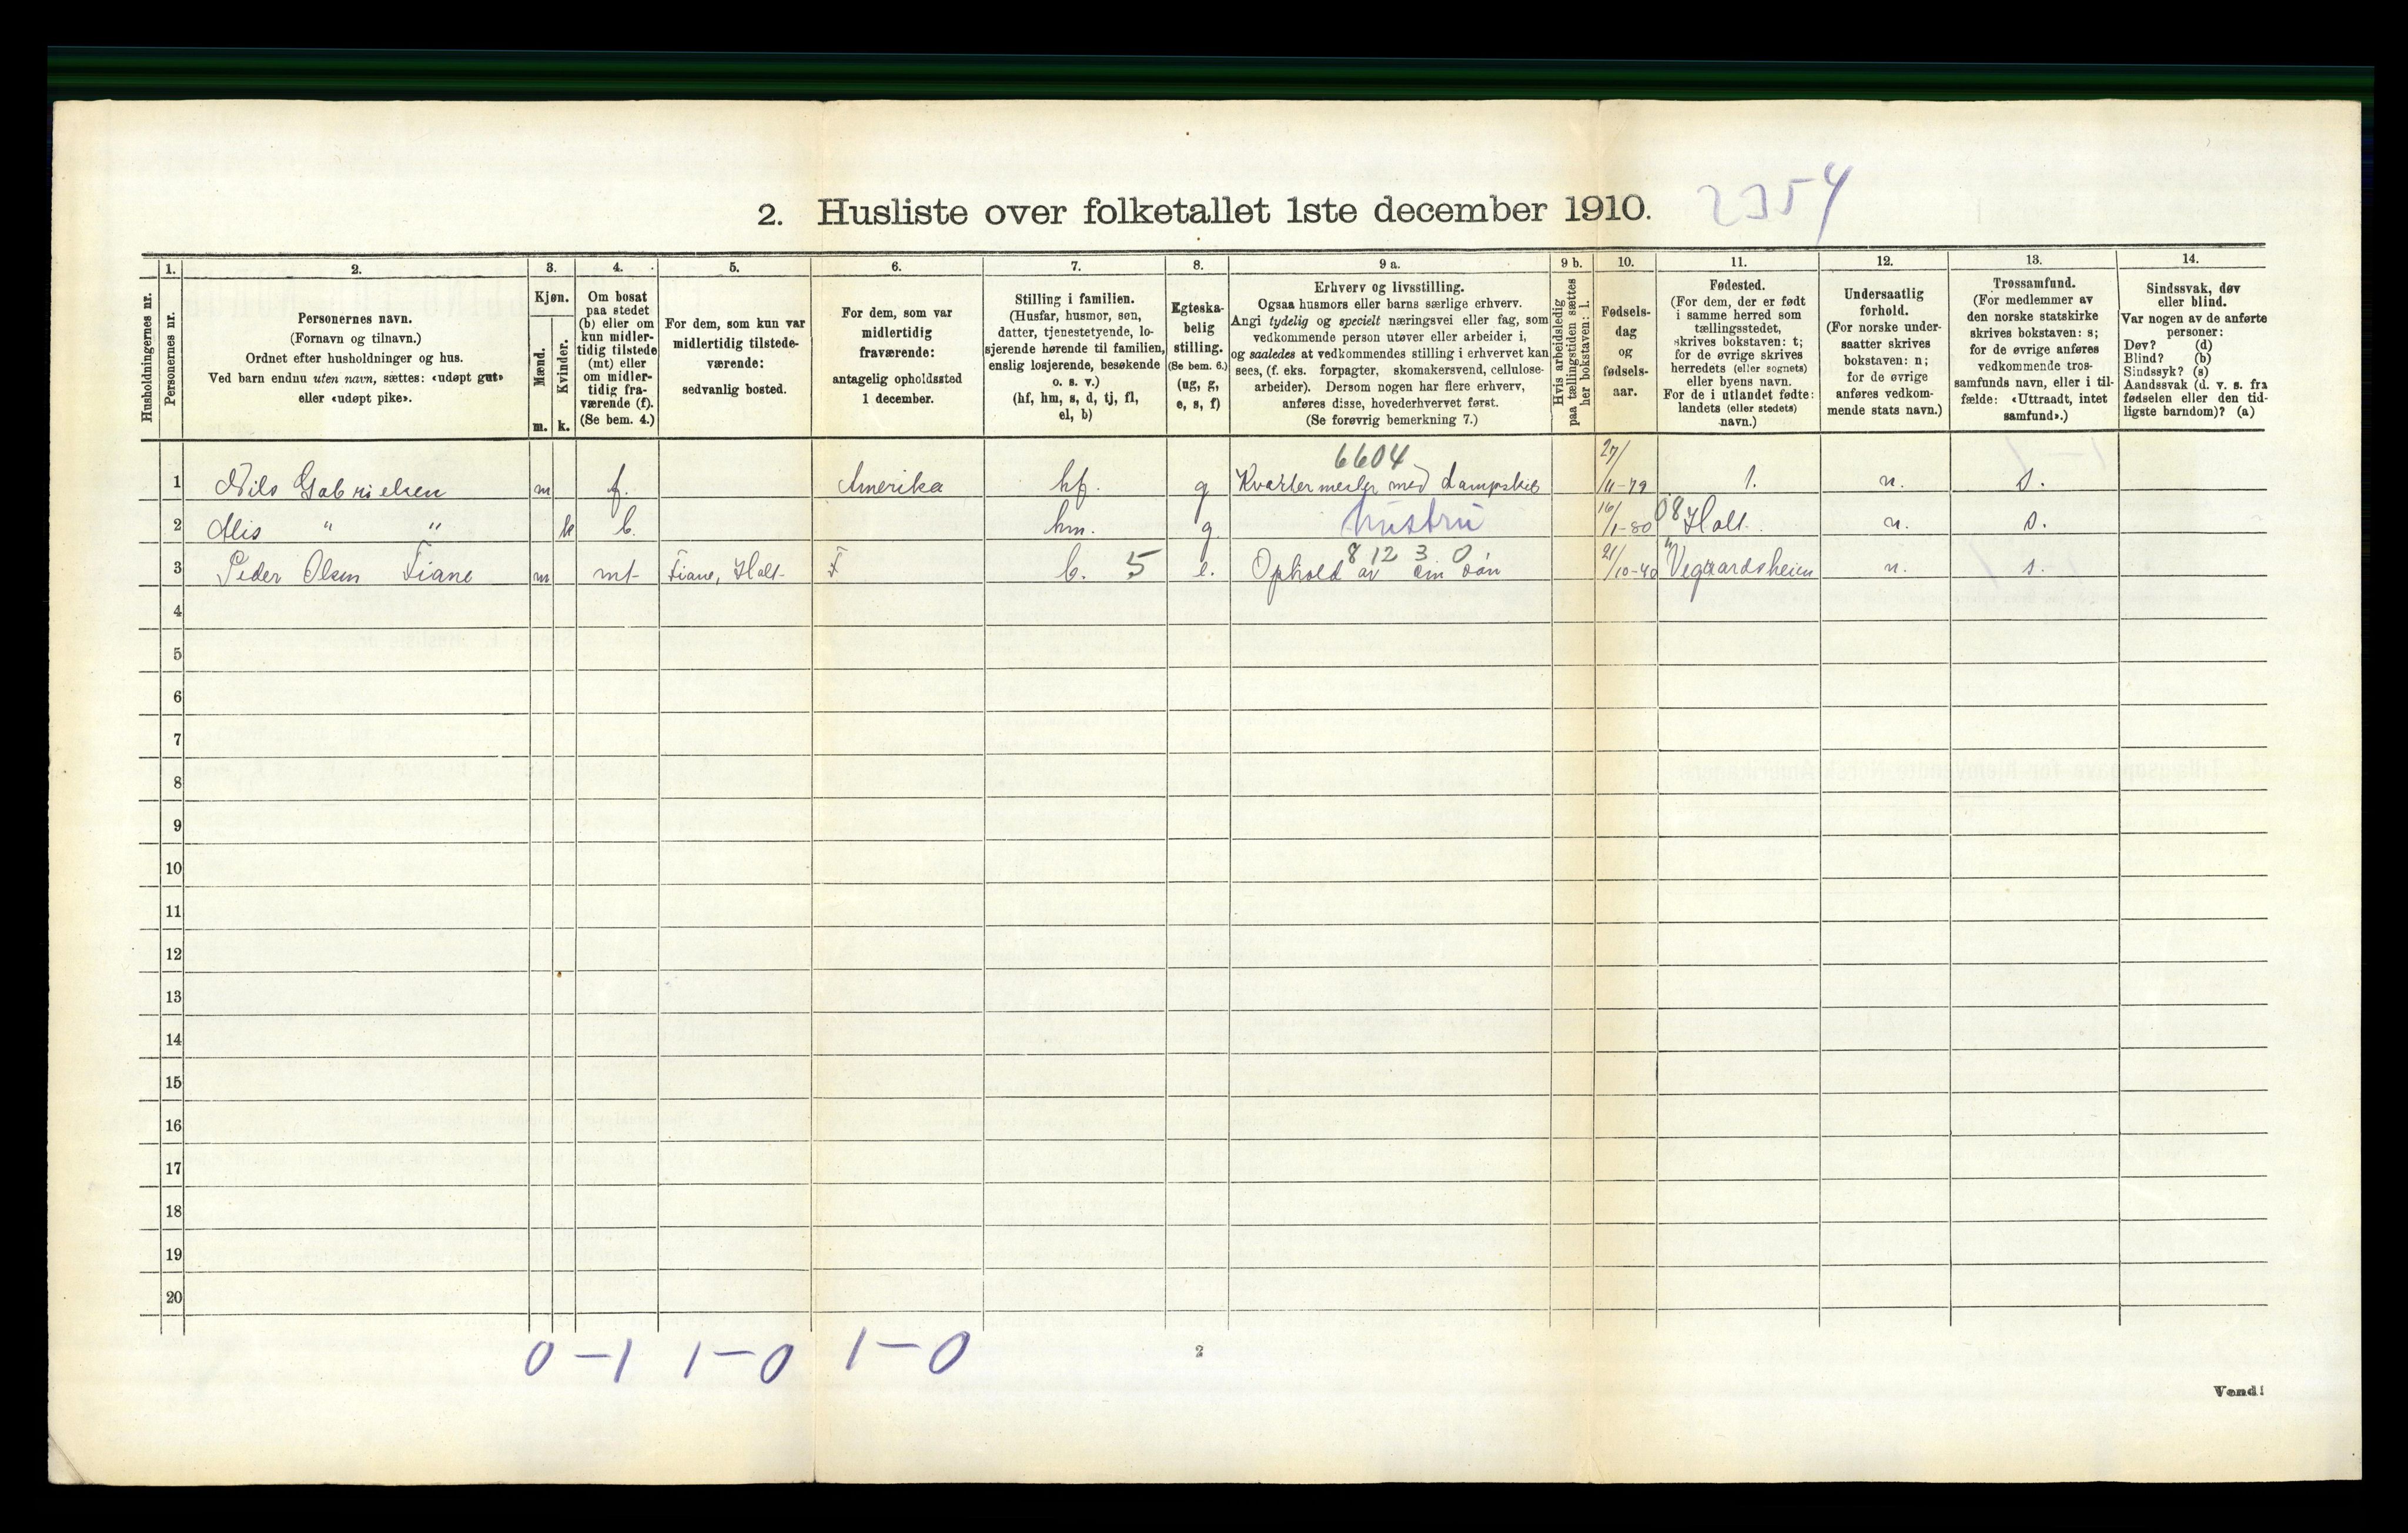 2. Husliste over folketallet 1ste december 1910. 2354
Husholdningernes nr.
1.
Personernes nr.
2.
Personernes navn.
(Fornavn og tilnavn.)
Ordnet efter husholdninger og hus.
Ved barn endnu uten navn, sættes: «udøpt gut»
eller «udøpt pike».
3.
Kjøn.
Mænd.
Kvinder.
m. k.
4.
Om bosat
paa stedet
(b) eller om
kun midler-
tidig tilstede
(mt) eller
om midler-
tidig fra-
værende (f).
(Se bem. 4.)
5.
For dem, som kun var
midlertidig tilstede-
værende:
sedvanlig bosted.
6.
For dem, som var
midlertidig
fraværende:
antagelig opholdssted
1 december.
7.
Stilling i familien.
(Husfar, husmor, søn,
datter, tjenestetyende, lo-
sjerende hørende til familien,
enslig losjerende, besøkende
o. s. v.)
(hf, hm, s, d, tj, fl,
el, b)
8.
Egteska-
belig
stilling.
(Se bem. 6.)
(ug, g,
e, s, f)
9 a.
Erhverv og livsstilling.
Ogsaa husmors eller barns særlige erhverv.
Angi tydelig og specielt næringsvei eller fag, som
vedkommende person utøver eller arbeider i,
og saaledes at vedkommendes stilling i erhvervet kan
sees, (f. eks. forpagter, skomakersvend, cellulose-
arbeider). Dersom nogen har flere erhverv,
anføres disse, hovederhvervet først.
(Se forøvrig bemerkning 7.)
9 b.
Hvis arbeidsledig
paa tællingstiden sættes
her bokstaven: l.
10.
Fødsels-
dag
og
fødsels-
aar.
11.
Fødested.
(For dem, der er født
i samme herred som
tællingsstedet,
skrives bokstaven: t;
for de øvrige skrives
herredets (eller sognets)
eller byens navn.
For de i utlandet fødte:
landets (eller stedets)
navn.)
12.
Undersaatlig
forhold.
(For norske under-
saatter skrives
bokstaven: n;
for de øvrige
anføres vedkom-
mende stats navn.)
13.
Trossamfund.
(For medlemmer av
den norske statskirke
skrives bokstaven: s;
for de øvrige anføres
vedkommende tros-
samfunds navn, eller i til-
fælde: «Uttraadt, intet
samfund».)
14.
Sindssvak, døv
eller blind.
Var nogen av de anførte
personer:
Døv? (d)
Blind? (b)
Sindssyk? (s)
Aandssvak (d. v. s. fra
fødselen eller den tid-
ligste barndom)? (a)
6604
1 Nils Gabrielsen m f. Amerika hf. g Kvartermester med Dampskib 27/11-79 t. n. s.
2 Alis " " k b. hm. g. hustru 16/1-80 08 Holt n. s.
8 12 3 0
3 Peder Olsen Fiane m mt- Fiane, Holt- F b. 5 e. Ophold av sin søn 21/10-40 " Vegaardsheien n. s.
4
5
6
7
8
9
10
11
12
13
14
15
16
17
18
19
20
0-1 1-0 1-0
2
Vend!